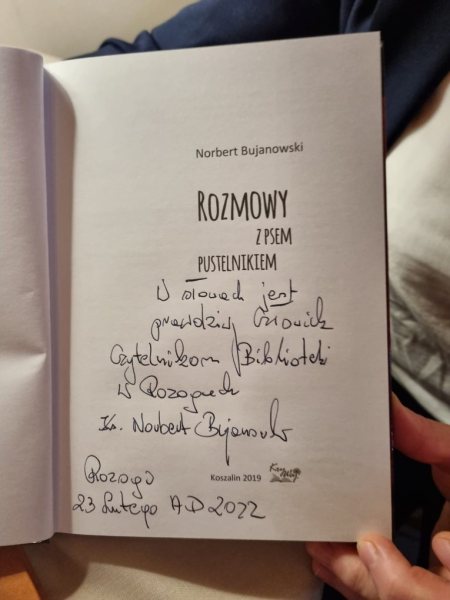 Norbert Bujanowski
ROZMOWY
Z PSEM
PUSTELNIKIEM
W słowach jest
prawdziwy Człowiek
Czytelnikom Biblioteki
w Rozogach
Ks. Norbert Bujanowski
Koszalin 2019
Rozogi
23 Lutego AD 2022